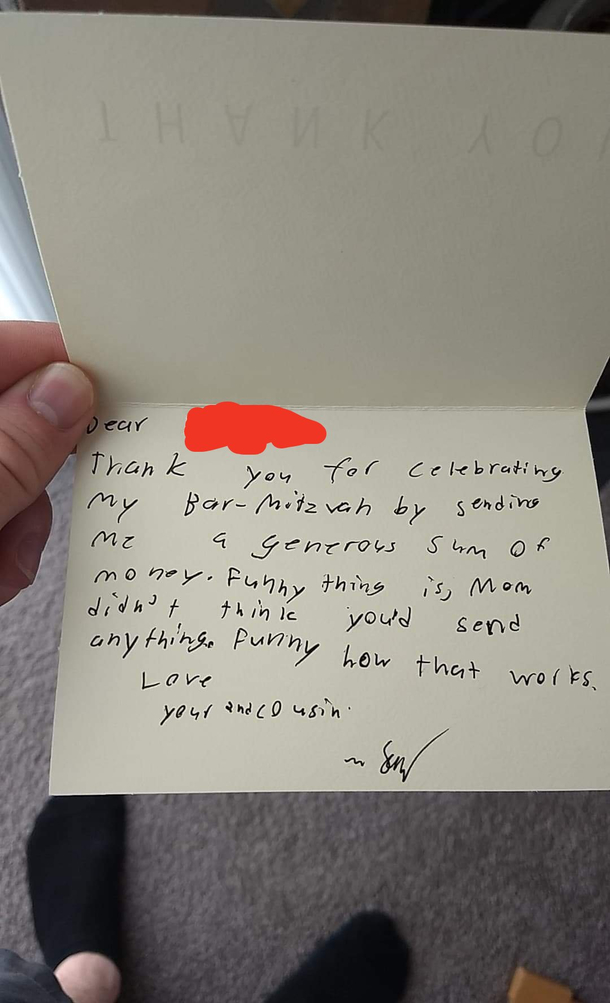 THANK YO
Dear
Thank you for celebrating
My Bar-Mitzvah by sending
Me a generous sum of
money. Funny thing is, Mom
didn't think you'd send
anything. Funny how that works.
Love
your 2nd cousin.